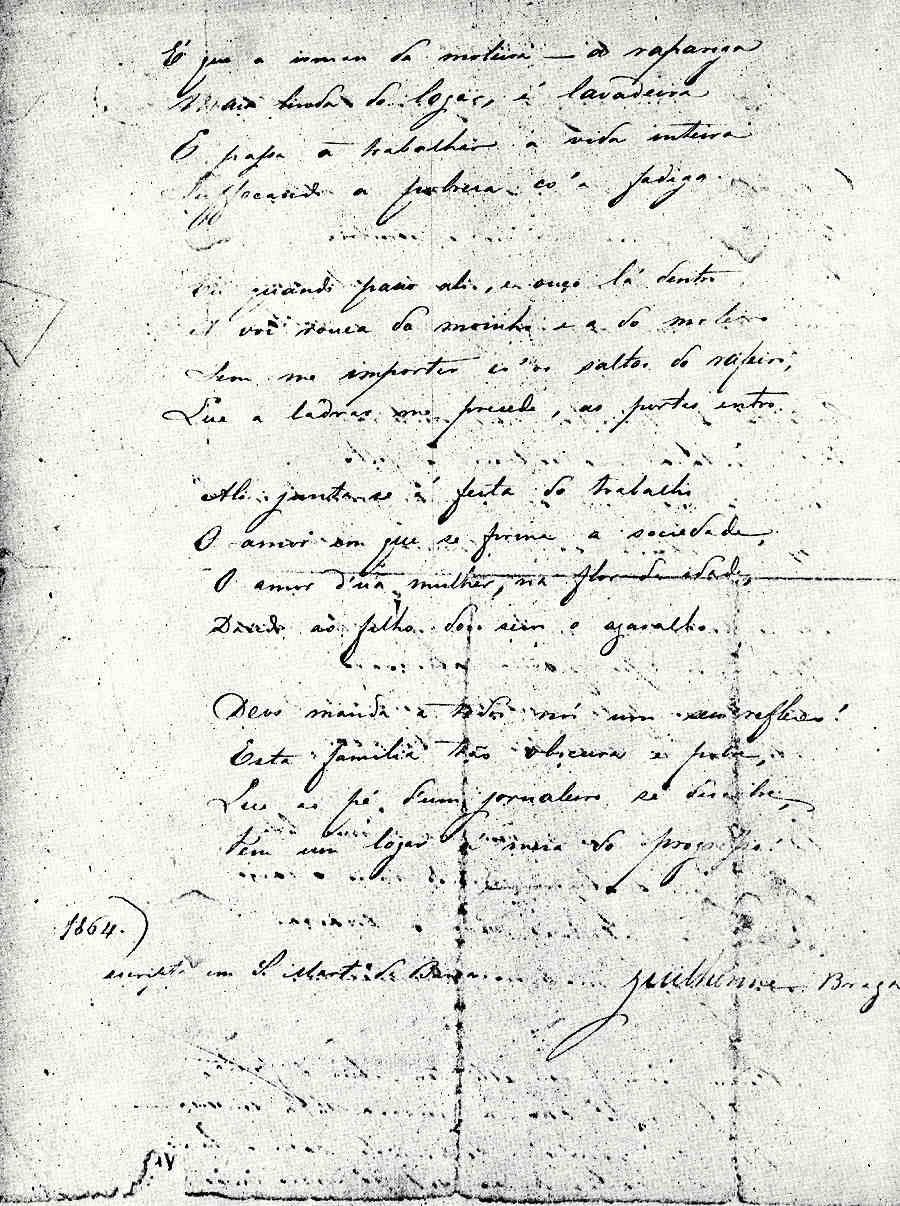 É que a irman da moleira — a rapariga
Mais linda do logar, é lavadeira
E passa a trabalhar a vida inteira
Suffocando a pobreza co'a fadiga.
Eu quando passo ali, e ouço lá dentro
A voz rouca do moinho e a do moleiro
Sem me importar co'os saltos do rafeiro,
Que a ladrar me precede, as portas entro.
Ali junta-se á festa do trabalho
O amor em que se firma a sociedade,
O amor d'uã mulher, na flor da idade,
Dando ao filho do seio o agasalho.
Deus manda a todos nós um seu reflexo!
Esta familia tão obscura e pobre,
Que ao pé d'um jornaleiro se descobre,
Tem um logar á meza do progresso!
1864.)
escripto em S. Mart. da Barca
Guilherme Braga